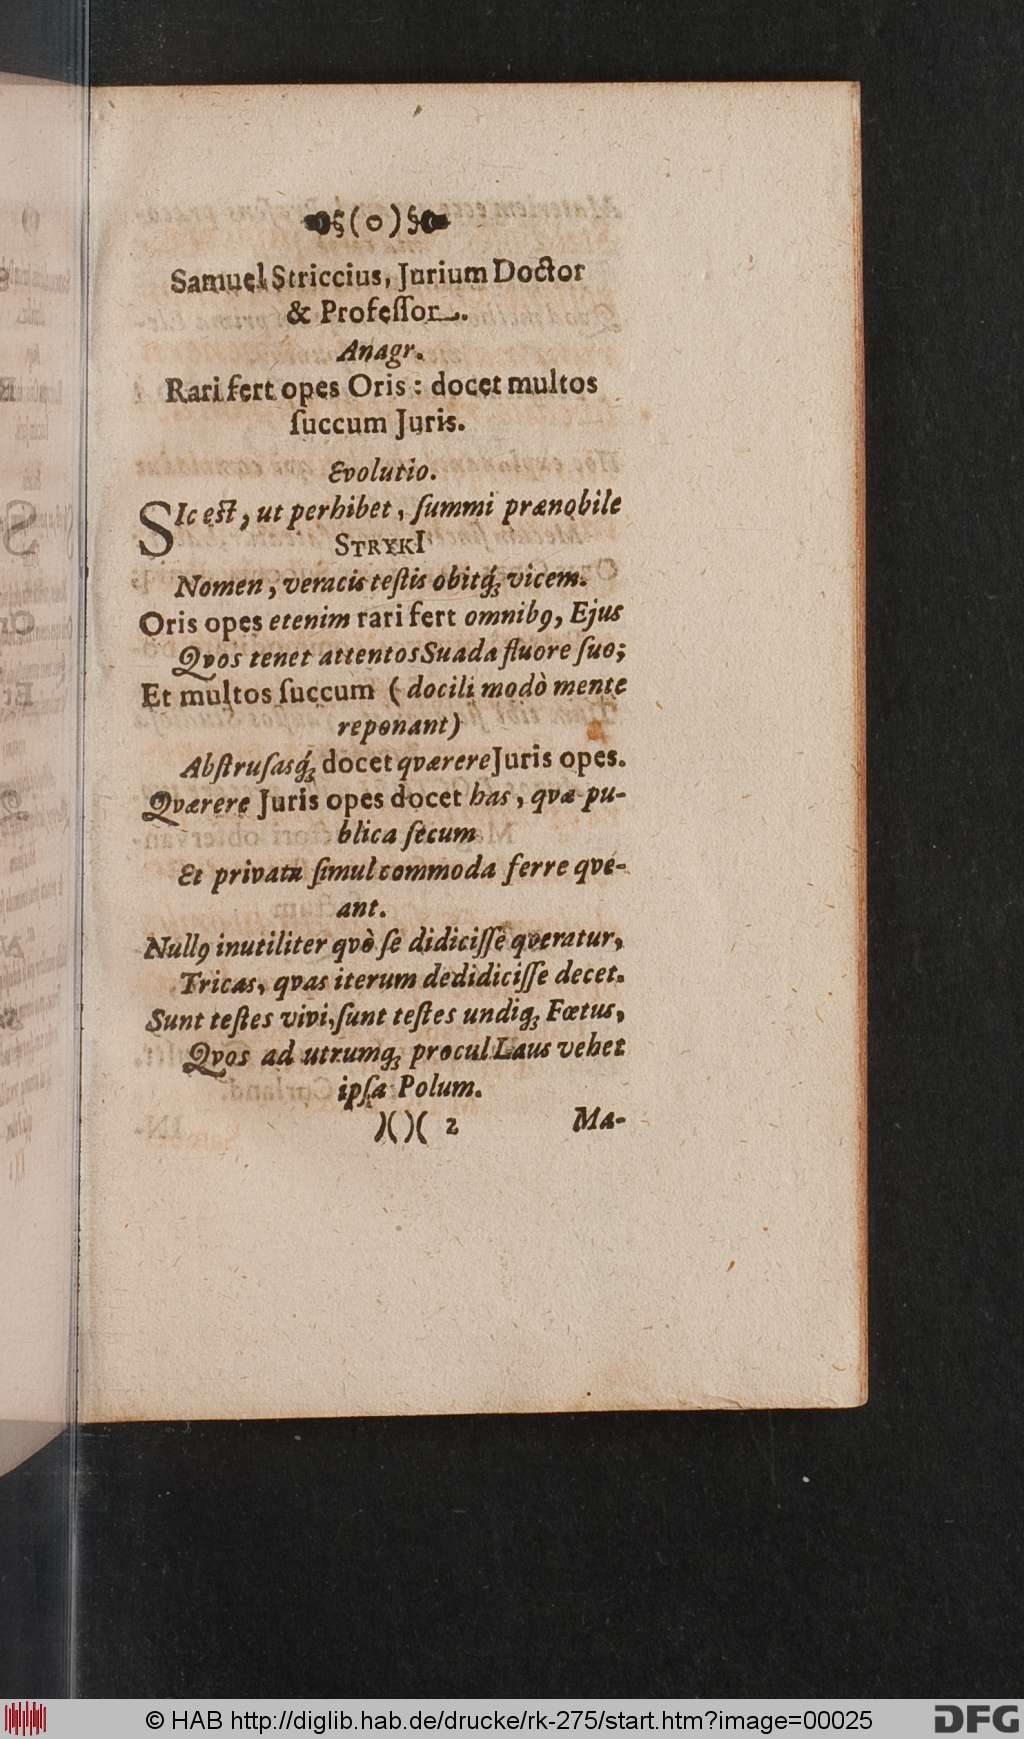 §(o)§
Samuel Striccius, Jurium Doctor
& Professor.
Anagr.
Rari fert opes Oris : docet multos
ſuccum Juris.
Evolutio.
SIc eſt, ut perhibet, ſummi prænobile
STRYKI
Nomen, veracis teſtis obitq́; vicem.
Oris opes etenim rari fert omnibꝰ, Ejus
Qvos tenet attentos Suada fluore ſuo;
Et multos ſuccum ( docili modò mente
reponant)
Abſtruſasq́; docet qværere Juris opes.
Qværere Juris opes docet has, qvæ pu-
blica ſecum
Et privata ſimul commoda ferre qve-
ant.
Nullꝰ inutiliter qvò ſe didiciſſe qveratur,
Tricas, qvas iterum dedidiciſſe decet.
Sunt teſtes vivi, ſunt teſtes undiq; Fœtus,
Qvos ad utrumq; procul Laus vehet
ipſa Polum.
)( )( 2 Ma-
© HAB http://diglib.hab.de/drucke/rk-275/start.htm?image=00025
DFG